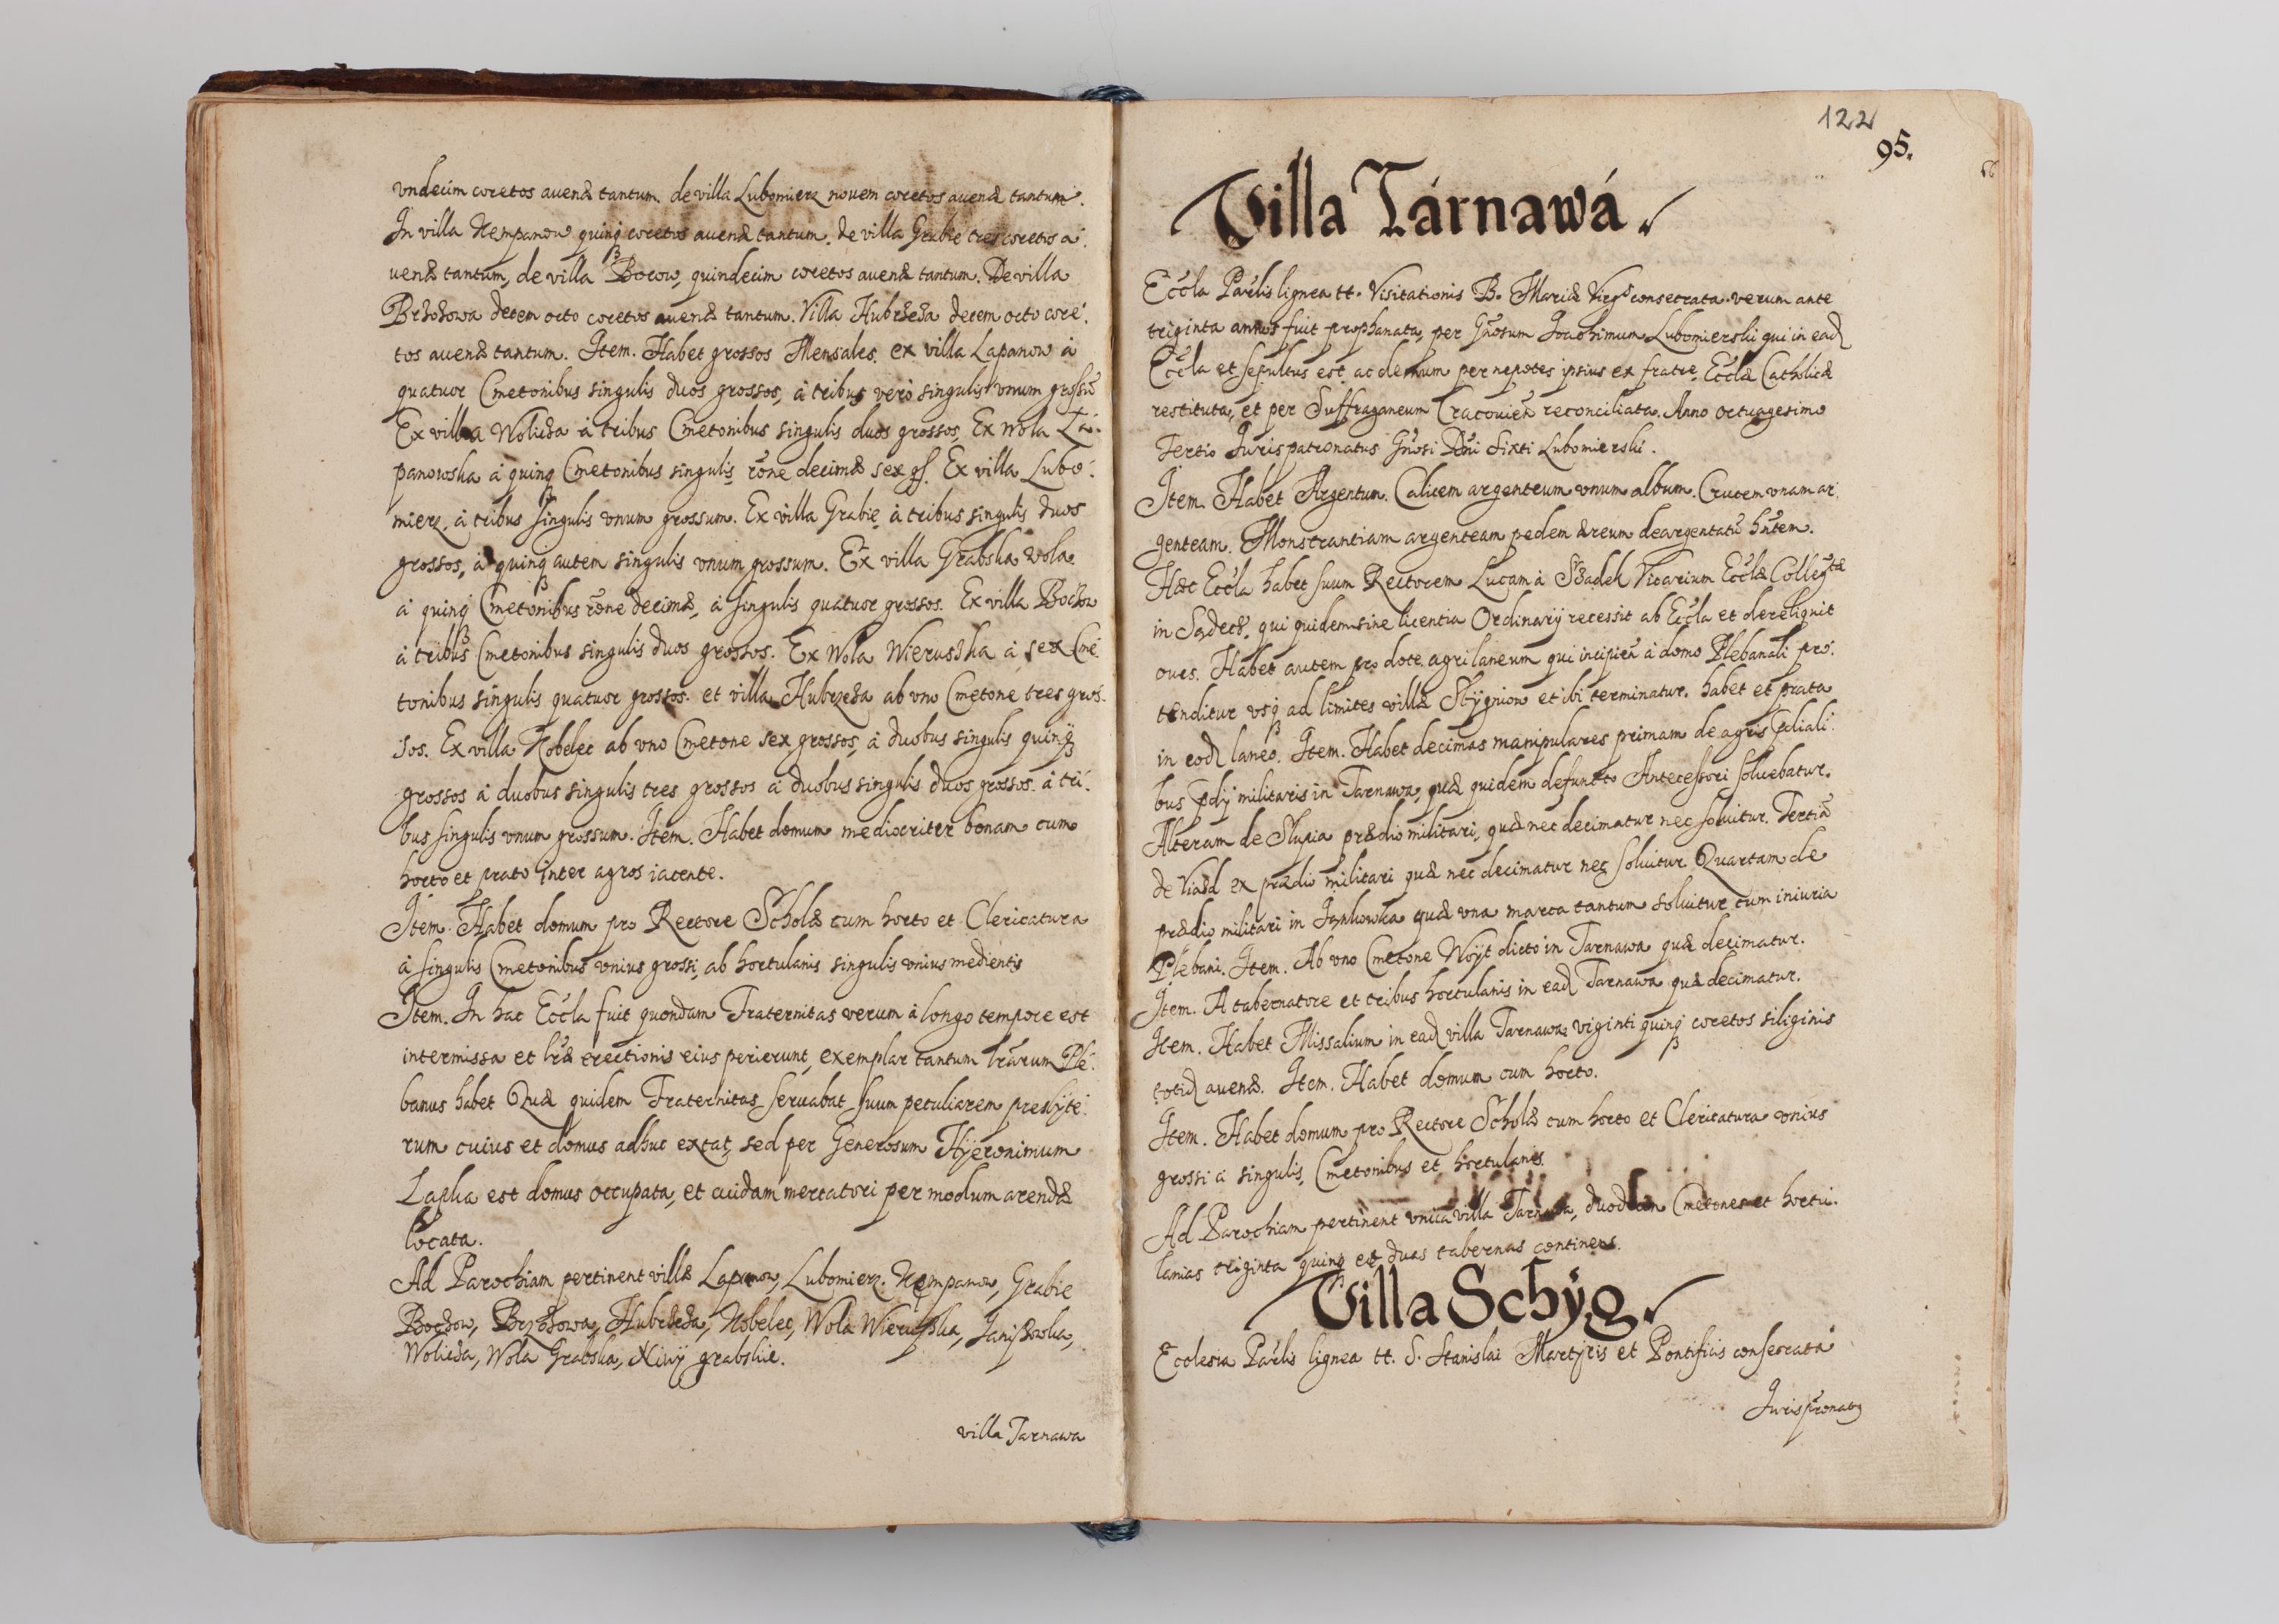 vndecim coretos auenæ tantum. de villa Lubomierz nouem coretos auenæ tantum.
In villa Kempanow quinq coretos auenæ tantum. de villa Grabie tres coretos a.
uenæ tantum, de villa Bocow, quindecim coretos auenæ tantum. De villa
Brzozowa decem octo coretos auenæ tantum. Villa Hubrzeza decem octo core.
tos auenæ tantum. Item. Habet grossos Mensales. ex villa Lapanow à
quatuor Cmetonibus singulis duos grossos, à tribus verò singulis vnum grossũ
Ex villa Wolicza à tribus Cmetonibus singulis duos grossos, Ex Wola La.
panowska à quinq Cmetonibus singulis rõne decimæ sex gſ. Ex villa Lubo.
mierz à tribus singulis vnum grossum. Ex villa Grabie à tribus singulis duos
grossos, à quinq autem singulis vnum grossum. Ex villa Grabska wola
à quinq Cmetonibus rõne decimæ, à singulis quatuor grossos. Ex villa Boczow
à tribus Cmetonibus singulis duos grossos. Ex Wola Wieruszka à sex Cme
tonibus singulis quatuor grossos. et villa Hubrzeza ab vno Cmetone tres gros.
sos. Ex villa Kobelec ab vno Cmetone sex grossos, à duobus singulis quinq
grossos à duobus singulis tres grossos à duobus singulis duos grossos à tri.
bus singulis vnum grossum. Item. Habet domum mediocriter bonam cum
horto et prato inter agros iacente.
Item. Habet domum pro Rectore Scholæ cum horto et Clericatura
à singulis Cmetonibus vnius grossi, ab hortulanis singulis vnius medientis
Item. In hac Eccla fuit quondam Fraternitas verum à longo tempore est
intermissa et lræ erectionis eius perierunt, exemplar tantum lrarum Ple.
banus habet Quæ quidem Fraternitas seruabat suum peculiarem presbyte.
rum cuius et domus adhuc extat, sed per Generosum Hyeronimum
Lapka est domus occupata, et cuidam mercatori per modum arendæ
locata.
Ad Parochiam pertinent villæ Lapanow, Lubomierz. Kempanow, Grabie
Boczow, Brzozowa, Hubrzeza, Kobelec, Wola Wieruszka, Janiszowka,
Wolicza, Wola Grabska, Niwy grabskie.
villa Tarnawa
122
95.
Villa Tárnawá
Eccla Parlis lignea tt. Visitationis B. Mariæ Virgs consecrata. verum ante
triginta annos fuit prophanata, per Gnosum Joachimum Lubomierski qui in ead
Eccla et sepultus est ac demum per nepotes ipsius ex fratre, Ecclæ Catholicæ
restituta, et per Suffraganeum Cracouien reconciliata. Anno octuagesimo
Tertio Iuris patronatus Gnosi Dni Sixti Lubomierski.
Item. Habet Argentum. Calicem argenteum vnum album. Crucem vnam ar.
genteam. Monstrantiam argenteam pedem æreum deargentatũ hñtem.
Hæc Eccla habet suum Rectorem Lucam à Szadek Vicarium Ecclæ Collegtæ
in Sądecz, qui quidem sine licentia Ordinarij recessit ab Eccla et dereliquit
oues. Habet autem pro dote agri laneum qui incipien à domo Plebanali pro.
tenditur vsq ad limites villæ Stÿgniow et ibi terminatur. habet et prata
in eod laneo. Item. Habet decimas manipulares primam de agris pdiali.
bus pdij militaris in Tarnawa, quæ quidem defuncto Antecessori soluebatur.
Alteram de Slupia prædio militari, quæ nec decimatur nec soluitur. Tertiã
de Viazd ex prædio militari quæ nec decimatur nec soluitur Quartam de
prædio militari in Jankowka quæ vna marca tantum soluitur cum iniuria
Plebani. Item. Ab vno Cmetone Woyt dicto in Tarnawa quæ decimatur.
Item. A tabernatore et tribus hortulanis in ead Tarnawa quæ decimatur.
Item. Habet Missalium in ead villa Tarnawa viginti quinq coretos siliginis
totid auenæ. Item. Habet domum cum horto.
Item. Habet domum pro Rectore Scholæ cum horto et Clericatura vnius
grossi à singulis, Cmetonibus et hortulanis.
Ad Parochiam pertinent vnica villa Tarnawa, duodecim Cmetones et hortu.
lanias triginta quinq et duas tabernas continens.
Villa Schÿg
Ecclesia Parlis lignea tt. S. Stanislai Martyris et Pontificis consecrata
Iuris pronatq